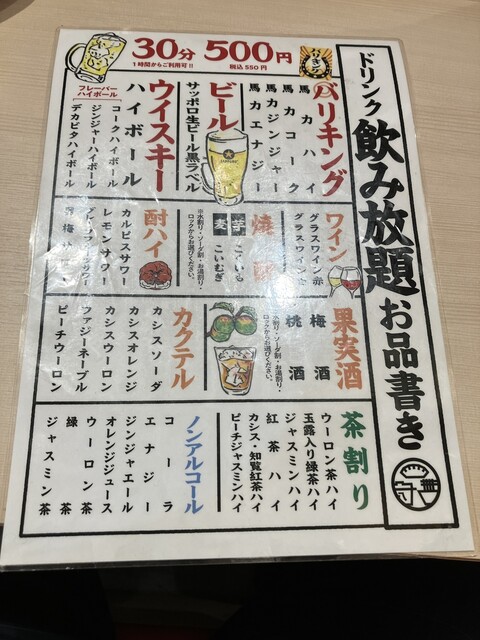 ドリンク飲み放題お品書き
30分 500円
1時間からご利用可!! 税込550円
バリキング
馬力ハイ
馬力コーク
馬力ジンジャー
馬力エナジー
ビール
サッポロ生ビール黒ラベル
ウイスキー
ハイボール
フレーバー
ハイボール
コークハイボール
ジンジャーハイボール
デカビタハイボール
ワイン
グラスワイン赤
グラスワイン
焼
芋
麦 こいむぎ
※水割り・ソーダ割・お湯割り・
ロックからお選びください。
酎ハイ
カルピスサワー
レモンサワー
果実酒
梅酒
桃酒
※水割り・ソーダ割・お湯割り・
ロックからお選びください。
カクテル
カシスソーダ
カシスオレンジ
カシスウーロン
ファジーネーブル
ピーチウーロン
茶割り
ウーロン茶ハイ
玉露入り緑茶ハイ
ジャスミンハイ
紅茶ハイ
カシス・知覧紅茶ハイ
ピーチジャスミンハイ
ノンアルコール
コーラ
エナジー
ジンジャエール
オレンジジュース
ウーロン茶
緑茶
ジャスミン茶